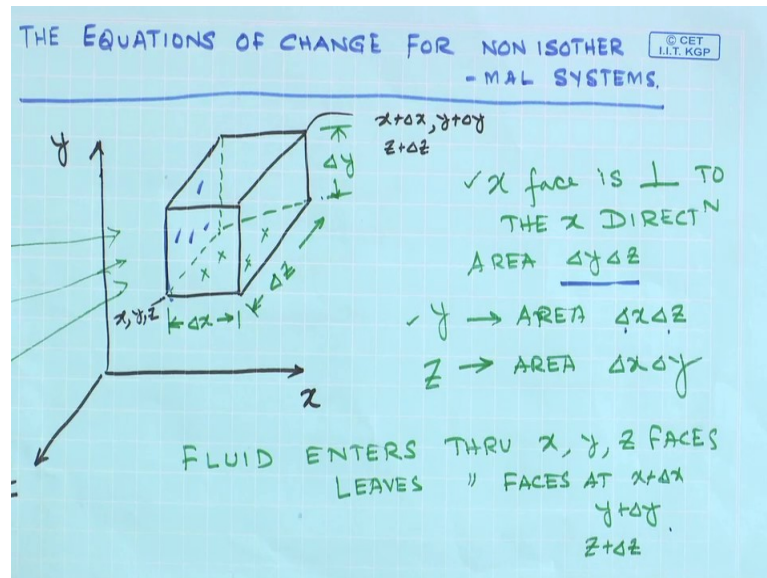 THE EQUATIONS OF CHANGE FOR NON ISOTHER
- MAL SYSTEMS.
© CET
I.I.T. KGP
x+Δx, y+Δy
z+Δz
y
Δy
✓ x face is ⊥ TO
THE x DIRECTᴺ
AREA ΔyΔz
Δz
x,y,z
Δx
✓ y → AREA ΔxΔz
z → AREA ΔxΔy
x
FLUID ENTERS THRU x, y, z FACES
LEAVES " FACES AT x+Δx
y+Δy.
z+Δz